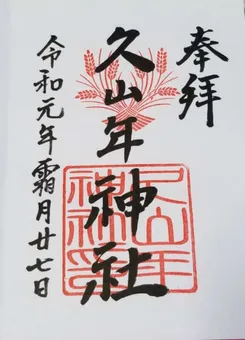 奉拝
久山年神社
令和元年霜月廿七日
久山年神社印